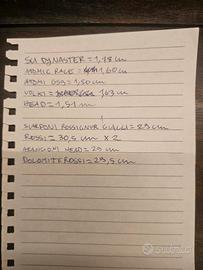 SCI DYNASTAR = 1,78 cm
ATOMIC RACE = 1,60 cm
ATOMI GS9 = 1,50 cm
VOLKL = 163 cm
HEAD = 1,51 m
SCARPONI ROSSIGNOL GIALLI = 29 cm
ROSSI = 30,5 cm x 2
ARANCIONI HEAD = 29 cm
DOLOMITE ROSSI = 29,5 cm
Subito.it